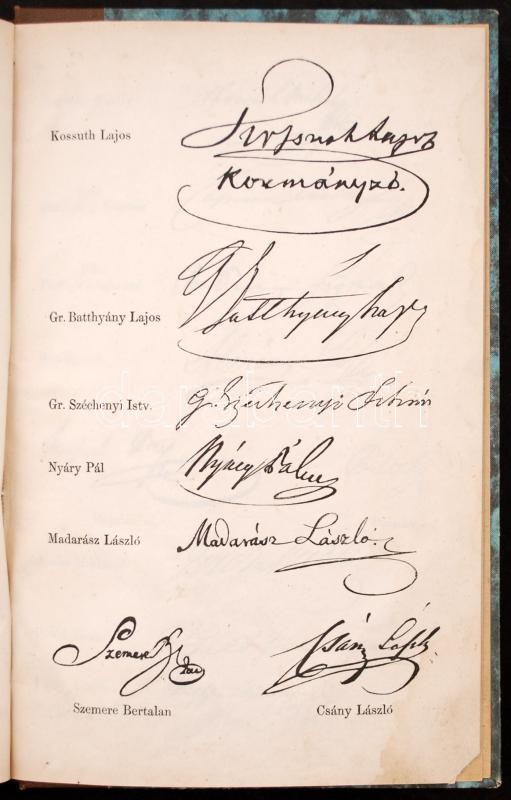 Kossuth Lajos
Kossuth Lajos
Kormányzó.
Gr. Batthyány Lajos
Gr Batthyány Lajos
Gr. Széchenyi Istv.
Gr Széchenyi István
Nyáry Pál
Nyáry Pál
Madarász László
Madarász László.
Szemere
Csány László
Szemere Bertalan
Csány László
darabanth